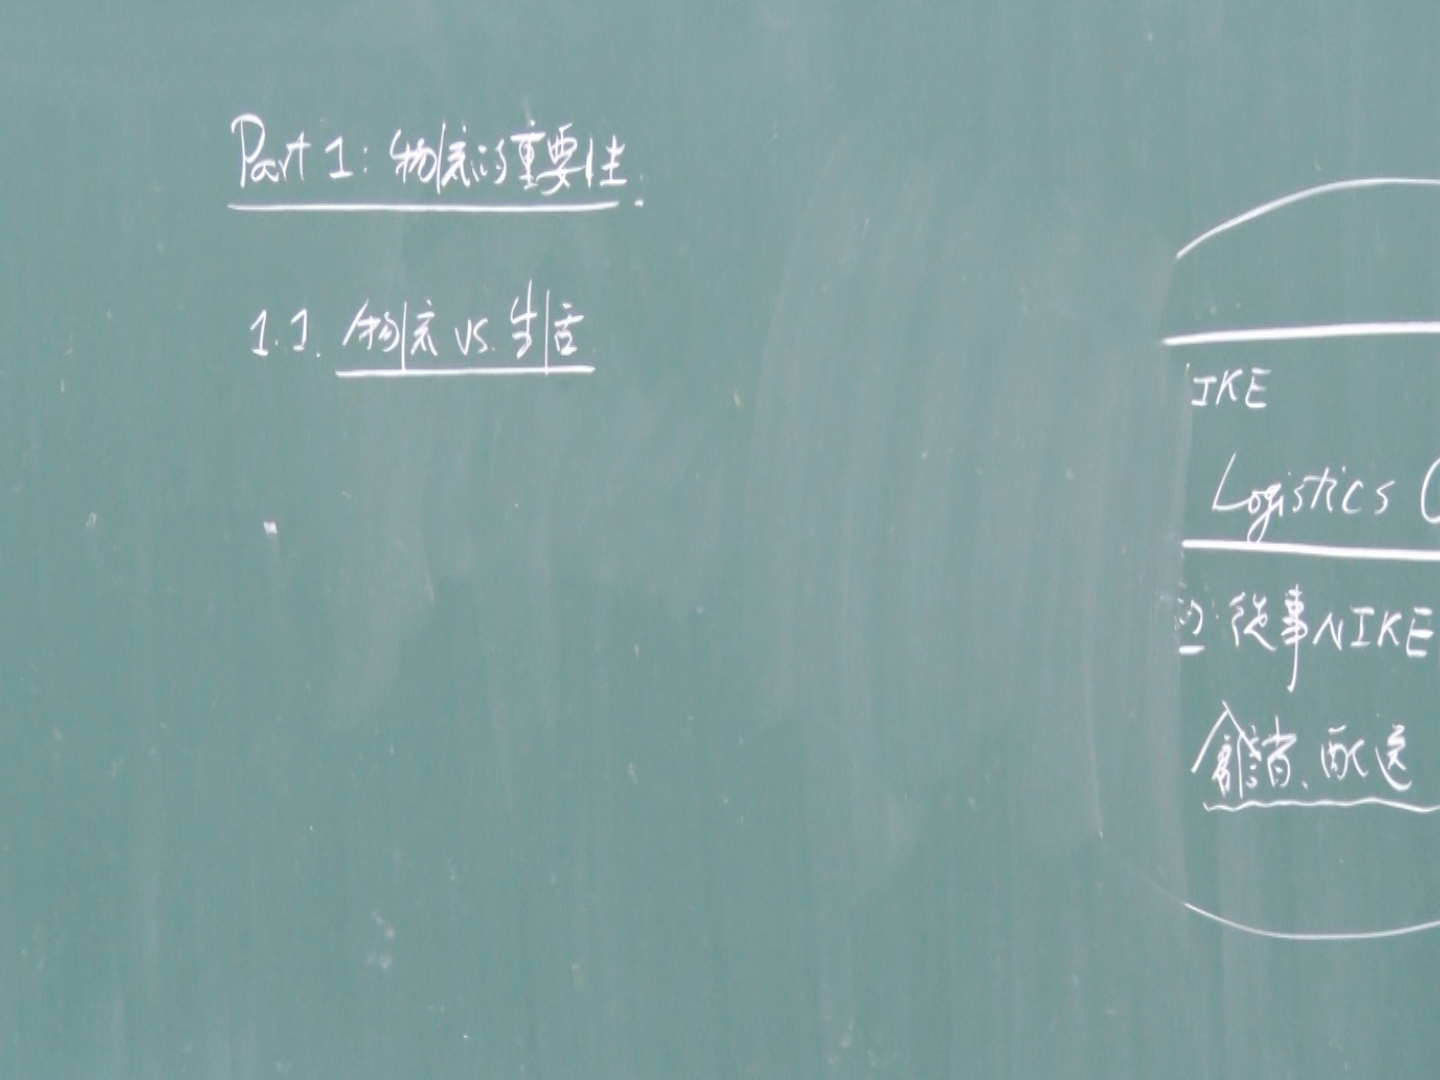 Part 1: 物流的重要性.
1.1. 物流 vs. 生活
IKE
Logistics C
的: 從事 NIKE
倉儲、配送